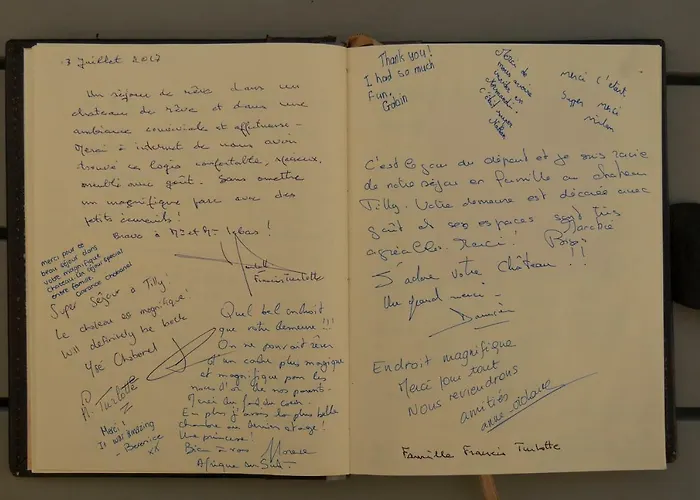 3 Juillet 2017
Un séjour de rêve dans un
chateau de rêve et dans une
ambiance conviviale et affectueuse -
Merci à internet de nous avoir
trouvé ce logis confortable, spacieux,
meublé avec goût. Sans omettre
un magnifique parc avec des
petits écureuils!
Bravo à Mme et Mr
Francis Turlotte
Merci pour ce
beau séjour dans
votre magnifique
chateau. Un séjour spécial
entre famille.
Chabanel
Super Séjour à Tilly!
Le chateau est magnifique!
Will definitely be back
Chabanel
A. Turlotte
Merci!
It was amazing
- Berenice
xx
Quel bel endroit
que votre demeure!!!
On ne pouvait rêver
d'un cadre plus magique
et magnifique pour les
noces d'or de nos parents.
Merci du fond du coeur.
En plus j'avais la plus belle
chambre au dernier étage!
Une princesse!
Bien à vous
Afrique du Sud.
Thank you!
I had so much
Fun,
Gabin
Merci de
nous avoir
en
Normandie!
C'était super
merci c'était
Super merci
C'est le jour du départ et je suis ravie
de notre séjour en famille au chateau
Tilly. Votre demeure est décorée avec
goût et ses espaces sont très
agréables. Merci!
J'adore votre Château!!
Un grand merci -
Damien
Endroit magnifique
Merci pour tout
Nous reviendrons
amitiés
Famille Francis Turlotte